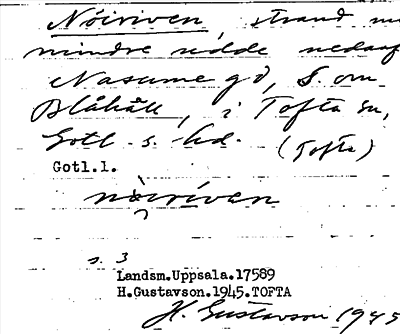 Nöiriven, strand m
mindre udde nedanf
Nasume gd, S. om
Blåhäll, i Tofta sn,
Gotl. s. hd. (Tofta)
Gotl.l.
nòiríven
s. 3
Landsm.Uppsala.17589
H.Gustavson.1945.TOFTA
H. Gustavson 1945